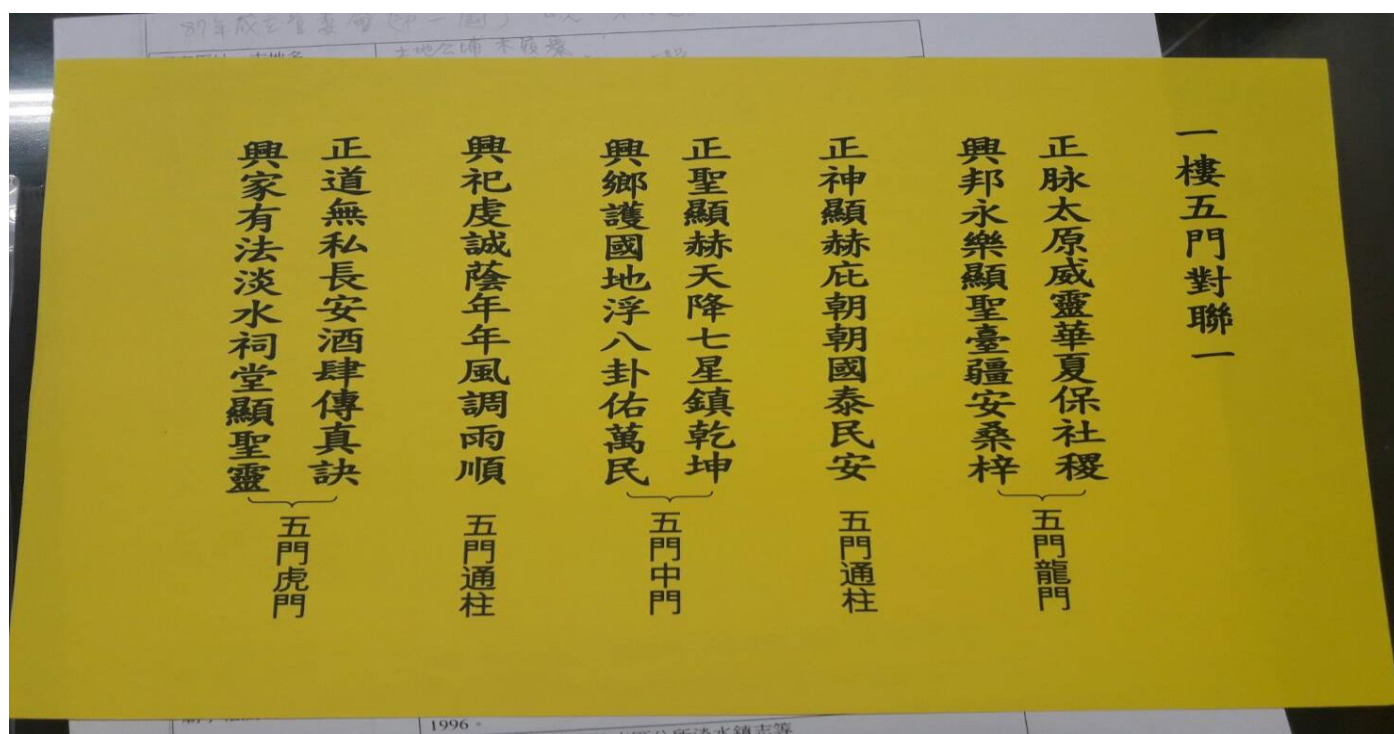 87年成立管委會
土地公埔
一樓五門對聯一
正脉太原威靈華夏保社稷
興邦永樂顯聖臺疆安桑梓
五門龍門
正神顯赫庇朝朝國泰民安
五門通柱
正聖顯赫天降七星鎮乾坤
興鄉護國地浮八卦佑萬民
五門中門
興祀虔誠蔭年年風調雨順
五門通柱
正道無私長安酒肆傳真訣
興家有法淡水祠堂顯聖靈
五門虎門
1996。